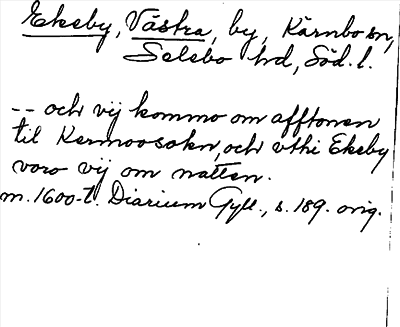 Ekeby, Västra, by, Kärnbo sn,
Selebo hd, Söd. l.
-- och vij kommo om afftonen
til Kermoosokn, och vthi Ekeby
voro vij om natten.
m. 1600-t. Diarium Gyll., s. 189. orig.